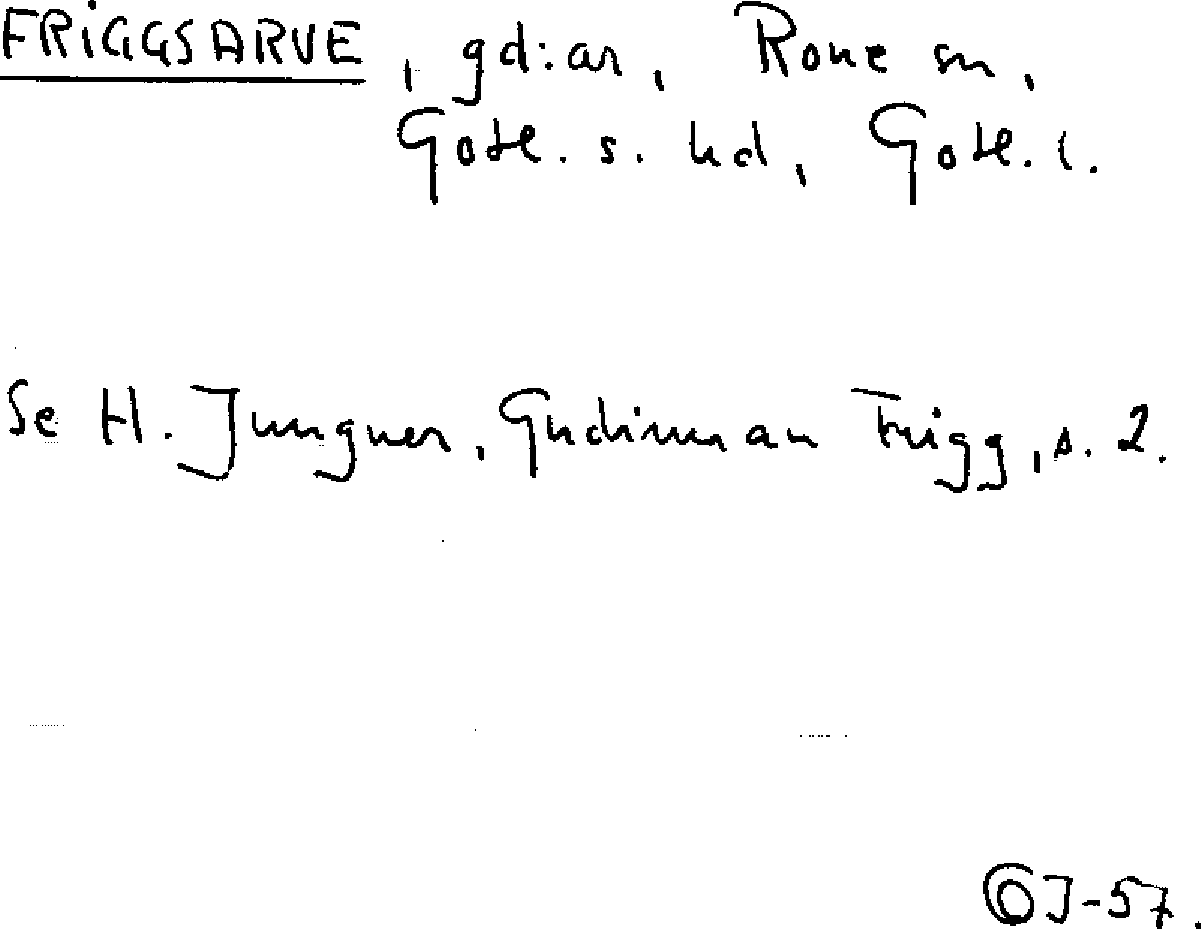 FRIGGSARVE, gd:ar, Rone sn,
Gotl. s. hd, Gotl. l.
Se H. Jungner, Gudinnan Frigg, s. 2.
J-57.